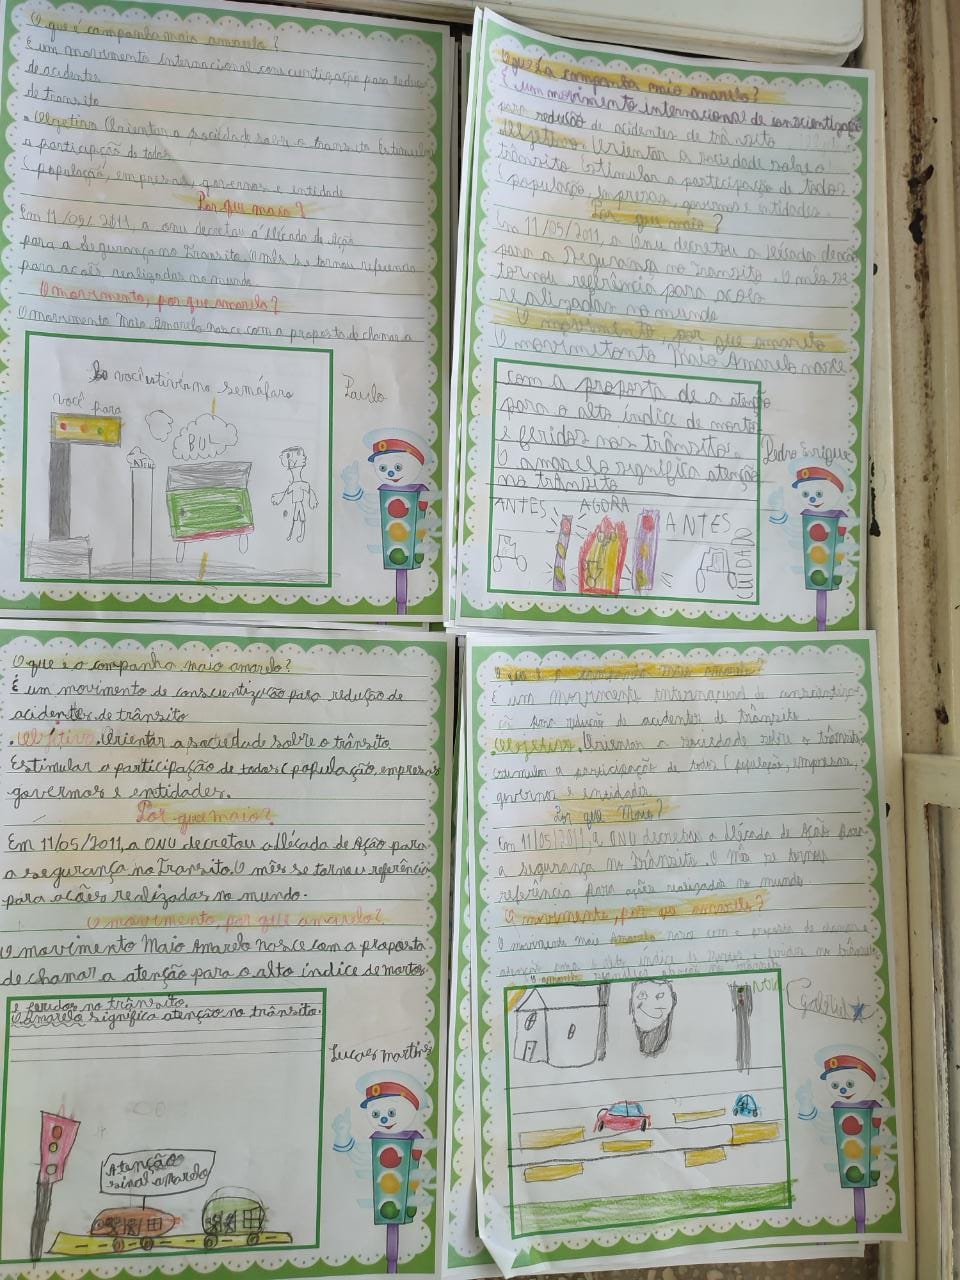 O que é campanha maio amarelo?
É um movimento internacional conscientização para redução
de acidentes
de transito
Objetivo Orientar a sociedade sobre o transito Estimular
a participação de todos
(população, empresas, governos e entidade
Por que maio?
Em 11/05/2011, a onu decretou a Década de Ação
para a Segurança no Transito. O mês se tornou referencia
para acoês realizadas no mundo
O movimento, por que amarelo?
O movimento Maio Amarelo nasce com a proposta de chamar a
So você estivér no semáfaro
você para
BUL
Paulo
O que é a companha maio amarelo?
É um movimento internacional de conscientização
para redução de acidentes de trânsito
Objetivo. Orientar a sociedade sobre o
trânsito Estimular a partecipação de todos
(população, Impresas, governos e entidades.
Por que maio?
Em 11/05/2011, a Onu decretou a Década de ação
para a Segurança no Transito. O mês se
tornou referência para acoês
realizadas no mundo
O movimento por que amarelo
O movimetonto Maio Amarelo nasce
com a proposta de a atenção
para o alto índice de mortos
e feridos nos trânsito.
O amarelo significa atenção
no trânsito
Pedro Enrique
ANTES AGORA ANTES
CUIDADO
O que é a companha maio amarelo?
É um movimento de conscientização para redução de
acidentes de trânsito
.Objetivo.Orientar a sociedade sobre o trânsito
Estimular a participação de todos (população, empresas
governos e entidades.
Por que maio?
Em 11/05/2011, a ONU decretou a Década de Ação para
a segurança no Transito. O mês se tornou referência
para acões realizadas no mundo.
O movimento, por que amarelo?
O movimento Maio Amarelo nasce com a proposta
de chamar a atenção para o alto índice de mortos
e feridos no trânsito.
O Amarelo significa atenção no trânsito.
Lucaes martins
Atenção
sinal amarelo
O que é a companha maio amarelo?
É um movimento internacional de conscientiza
ção para redução de acidentes de trânsito.
.Objetivo. Orientar a sociedade sobre o trânsito
estimular a participação de todos (população, empresas,
governos e entidades
Por que Maio?
Em 11/05/2011, a ONU decretou a Década de Ação para
a segurança no Trânsito. O mês se tornou
referência para ações realizadas no mundo
O movimento, por que amarelo?
O movimento maio Amarelo nasce com a proposta de chamar a
atenção para o alto índice de mortos e feridos no trânsito
O amarelo significa atenção no trânsito
Gabriel